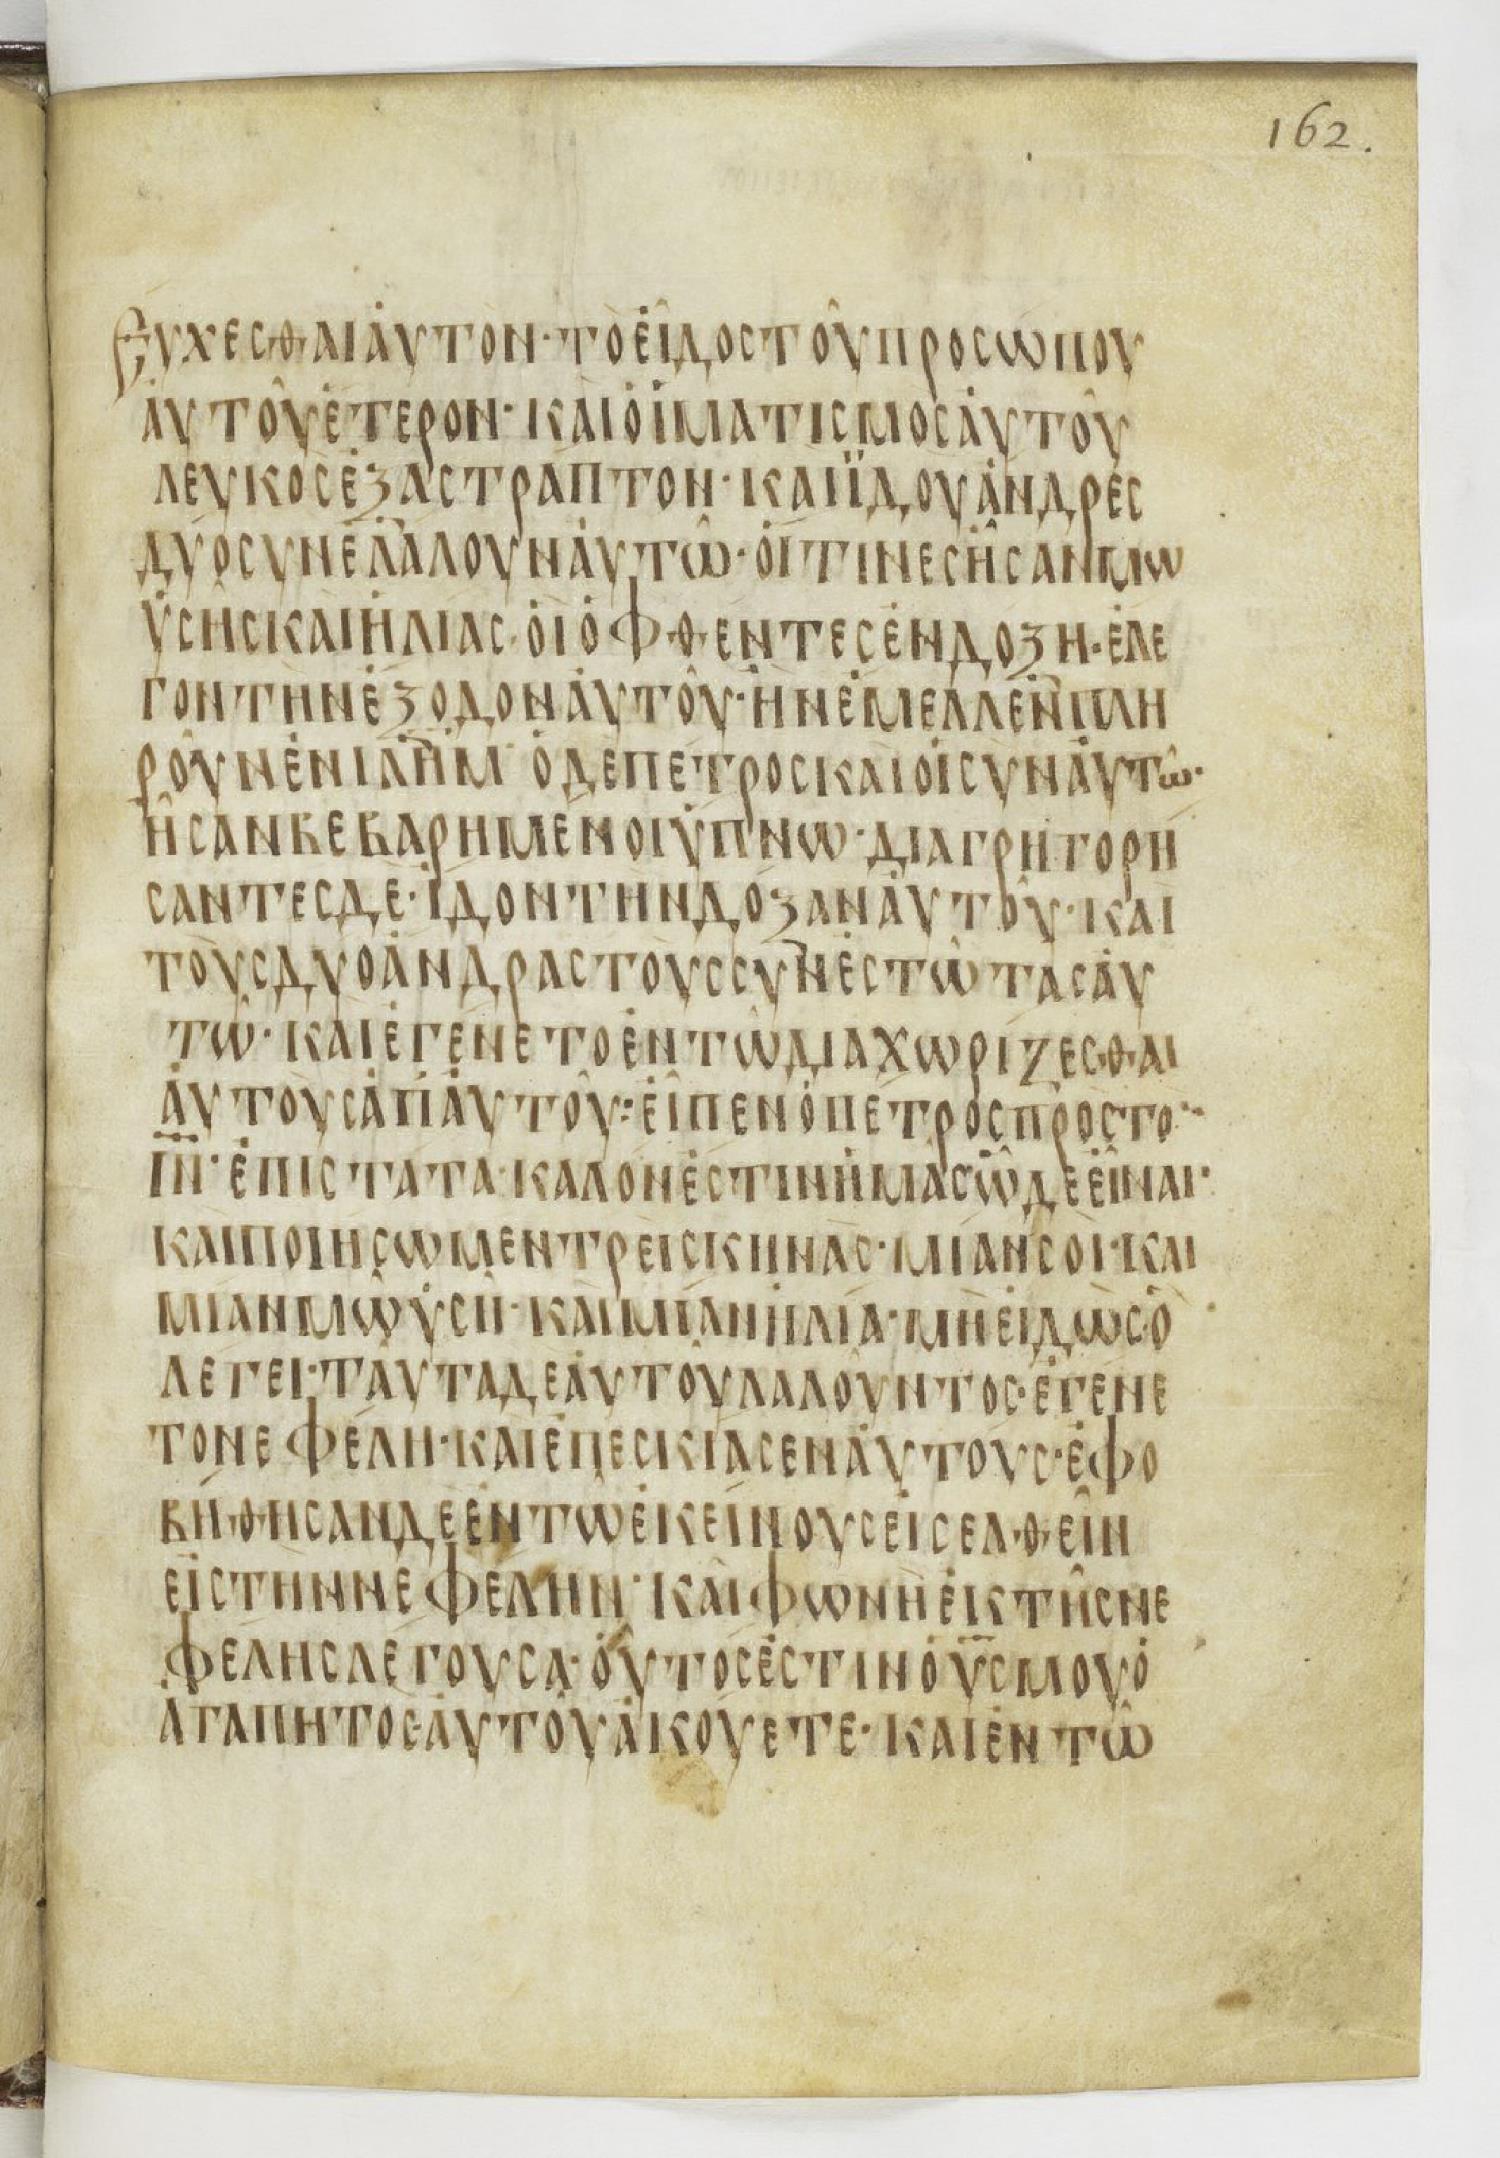 162.
ΕΥΧΕΣΘΑΙΑΥΤΟΝ·ΤΟΕΙΔΟΣΤΟΥΠΡΟΣΩΠΟΥ
ΑΥΤΟΥΕΤΕΡΟΝ·ΚΑΙΟΙΜΑΤΙΣΜΟΣΑΥΤΟΥ
ΛΕΥΚΟΣΕΞΑΣΤΡΑΠΤΟΝ·ΚΑΙΪΔΟΥΑΝΔΡΕΣ
ΔΥΟΣΥΝΕΛΑΛΟΥΝΑΥΤΩ·ΟΙΤΙΝΕΣΗΣΑΝΜΩ
ΥΣΗΣΚΑΙΗΛΙΑΣ·ΟΙΟΦΘΕΝΤΕΣΕΝΔΟΞΗ·ΕΛΕ
ΓΟΝΤΗΝΕΞΟΔΟΝΑΥΤΟΥ·ΗΝΕΜΕΛΛΕΝΠΛΗ
ΡΟΥΝΕΝΙΛΗΜ ΟΔΕΠΕΤΡΟΣΚΑΙΟΙΣΥΝΑΥΤΩ·
ΗΣΑΝΒΕΒΑΡΗΜΕΝΟΙΥΠΝΩ·ΔΙΑΓΡΗΓΟΡΗ
ΣΑΝΤΕΣΔΕ·ΙΔΟΝΤΗΝΔΟΞΑΝΑΥΤΟΥ·ΚΑΙ
ΤΟΥΣΔΥΟΑΝΔΡΑΣΤΟΥΣΣΥΝΕΣΤΩΤΑΣΑΥ
ΤΩ·ΚΑΙΕΓΕΝΕΤΟΕΝΤΩΔΙΑΧΩΡΙΖΕΣΘΑΙ
ΑΥΤΟΥΣΑΠΑΥΤΟΥ:ΕΙΠΕΝΟΠΕΤΡΟΣΠΡΟΣΤΟ
ΙΝ·ΕΠΙΣΤΑΤΑ·ΚΑΛΟΝΕΣΤΙΝΗΜΑΣΩΔΕΕΙΝΑΙ·
ΚΑΙΠΟΙΗΣΩΜΕΝΤΡΕΙΣΚΗΝΑΣ·ΜΙΑΝΣΟΙ·ΚΑΙ
ΜΙΑΝΜΩΥΣΗ·ΚΑΙΜΙΑΝΗΛΙΑ·ΜΗΕΙΔΩΣΟ
ΛΕΓΕΙ·ΤΑΥΤΑΔΕΑΥΤΟΥΛΑΛΟΥΝΤΟΣ·ΕΓΕΝΕ
ΤΟΝΕΦΕΛΗ·ΚΑΙΕΠΕΣΚΙΑΣΕΝΑΥΤΟΥΣ·ΕΦΟ
ΒΗΘΗΣΑΝΔΕΕΝΤΩΕΚΕΙΝΟΥΣΕΙΣΕΛΘΕΙΝ
ΕΙΣΤΗΝΝΕΦΕΛΗΝ·ΚΑΙΦΩΝΗΕΚΤΗΣΝΕ
ΦΕΛΗΣΛΕΓΟΥΣΑ·ΟΥΤΟΣΕΣΤΙΝΟΥΣΜΟΥΟ
ΑΓΑΠΗΤΟΣ·ΑΥΤΟΥΑΚΟΥΕΤΕ·ΚΑΙΕΝΤΩ